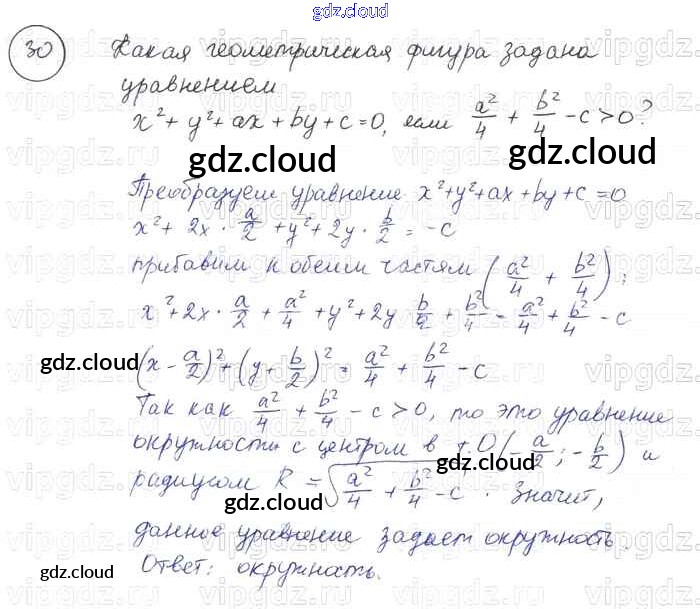 gdz.cloud
30 Какая геометрическая фигура задана
уравнением
x² + y² + ax + by + c = 0, если a²/4 + b²/4 - c > 0?
gdz.cloud gdz.cloud
Преобразуем уравнение x² + y² + ax + by + c = 0
x² + 2x · a/2 + y² + 2y · b/2 = -c
прибавим к обеим частям (a²/4 + b²/4);
x² + 2x · a/2 + a²/4 + y² + 2y b/2 + b²/4 - a²/4 + b²/4 - c
gdz.cloud
(x - a/2)² + (y + b/2)² = a²/4 + b²/4 - c
gdz.cloud
Так как a²/4 + b²/4 - c > 0, то это уравнение
окружности с центром в т.О (-a/2; -b/2) и
радиусом R = √a²/4 + b²/4 - c . Значит,
gdz.cloud gdz.cloud
данное уравнение задает окружность.
Ответ: окружность.
gdz.cloud gdz.cloud